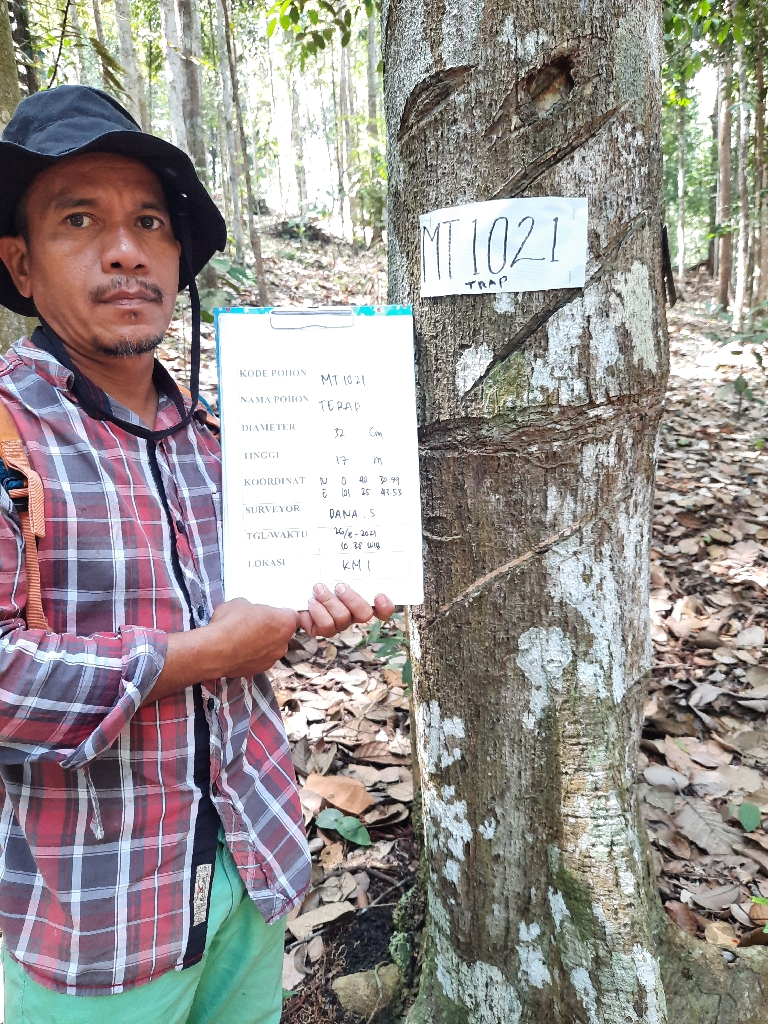 MT 1021
TRAP
KODE POHON MT 1021
NAMA POHON TERAP
DIAMETER 32 Cm
TINGGI 17 m
KOORDINAT N 0 40 30.99
E 101 25 43.53
SURVEYOR DANA.S
TGL/WAKTU 26/8-2021
10 38 WIB
LOKASI KM 1